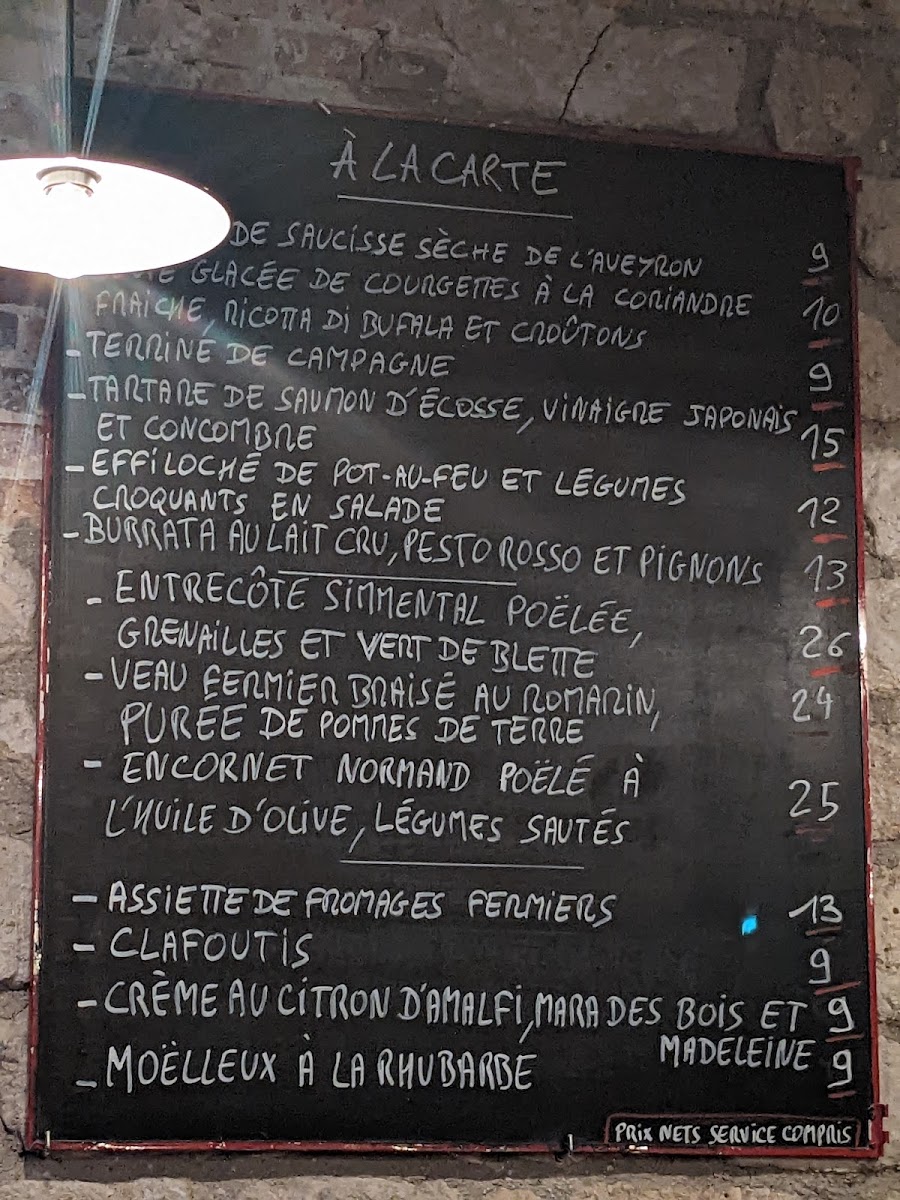 À LA CARTE
DE SAUCISSE SÈCHE DE L'AVEYRON 9
GLACÉE DE COURGETTES À LA CORIANDRE 10
FRAICHE, RICOTTA DI BUFALA ET CROÛTONS
- TERRINE DE CAMPAGNE 9
- TARTARE DE SAUMON D'ÉCOSSE, VINAIGRE JAPONAIS 15
ET CONCOMBRE
- EFFILOCHÉ DE POT-AU-FEU ET LÉGUMES
CROQUANTS EN SALADE 12
- BURRATA AU LAIT CRU, PESTO ROSSO ET PIGNONS 13
- ENTRECÔTE SIMMENTAL POËLÉE,
GRENAILLES ET VERT DE BLETTE 26
- VEAU FERMIER BRAISÉ AU ROMARIN, 24
PURÉE DE POMMES DE TERRE
- ENCORNET NORMAND POËLÉ À 25
L'HUILE D'OLIVE, LÉGUMES SAUTÉS
- ASSIETTE DE FROMAGES FERMIERS 13
- CLAFOUTIS 9
- CRÈME AU CITRON D'AMALFI, MARA DES BOIS ET 9
MADELEINE
- MOËLLEUX À LA RHUBARBE 9
PRIX NETS SERVICE COMPRIS